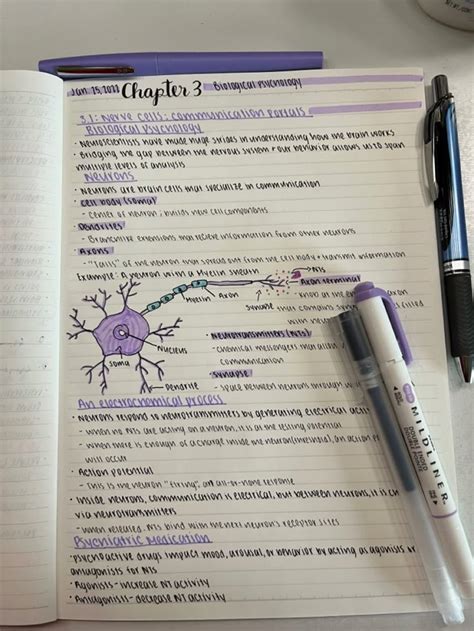 Jan. 25, 2022 Chapter 3 Biological Psychology
3.1: Nerve Cells: communication portals
Biological Psychology
· Neuroscientists have made huge strides in understanding how the brain works
· Bridging the gap between the nervous system + our behavior allows us to span
multiple levels of analysis
Neurons
· Neurons are brain cells that specialize in communication
Cell body (soma)
- Center of neuron; builds new cell components
Dendrites
- Branchlike extensions that recieve information from other neurons
Axons
- "Tails" of the neuron that spread out from the cell body + transmit information
Example: A neuron with a Myelin sheath
NTs
Axon terminal
Myelin
Axon
Synapse
Nucleus
Soma
Dendrite
- Knob at the end of the axon
that contains
filled
with
· Neurotransmitters (NTs)
- Chemical messengers that allow
communication
· Synapse
- Space between neurons through
An electrochemical process
· Neurons respond to neurotransmitters by generating electrical
- When no NTs are acting on a neuron, it is at the resting potential
- When there is enough of a charge inside the neuron (threshold), an action
will occur
· Action potential
- This is the neuron "firing", an all-or-none response
· Inside neurons, communication is electrical, but between neurons, it is
via neurotransmitters
- When released, NTs bind with the next neuron's receptor sites
Psychiatric Medication
· Psychoactive drugs impact mood, arousal, or behavior by acting as agonists or
antagonists for NTs
· Agonists - increase NT activity
· Antagonists - decrease NT activity
MILDLINER
DOUBLE ENDED